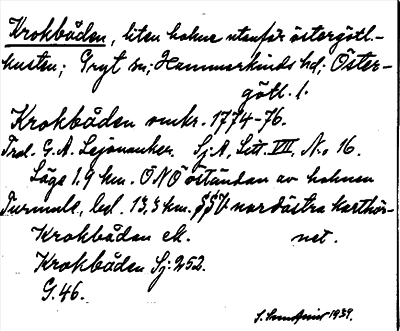 Krokbåden, liten holme utanför östergötl.-
kusten; Gryt sn; Hammarkinds hd; Öster-
götl. l.
Krokbåden omkr. 1774-76.
Trol. G.A. Lejonanker. Sj.A, Litt. VII, No 16.
Läge 1.9 km. ÖNÖ öständan av holmen
Turmule, bel. 13,3 km. SSV nordöstra karthör-
net.
Krokbåden ek.
Krokbåden Sj: 252.
G. 46.
1939.